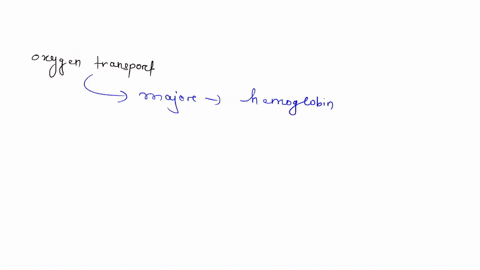 oxygen transport
majore → hemoglobin